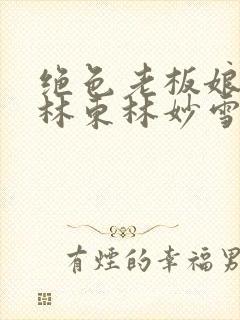 绝色老板娘
林东林妙雪
有烟的幸福男